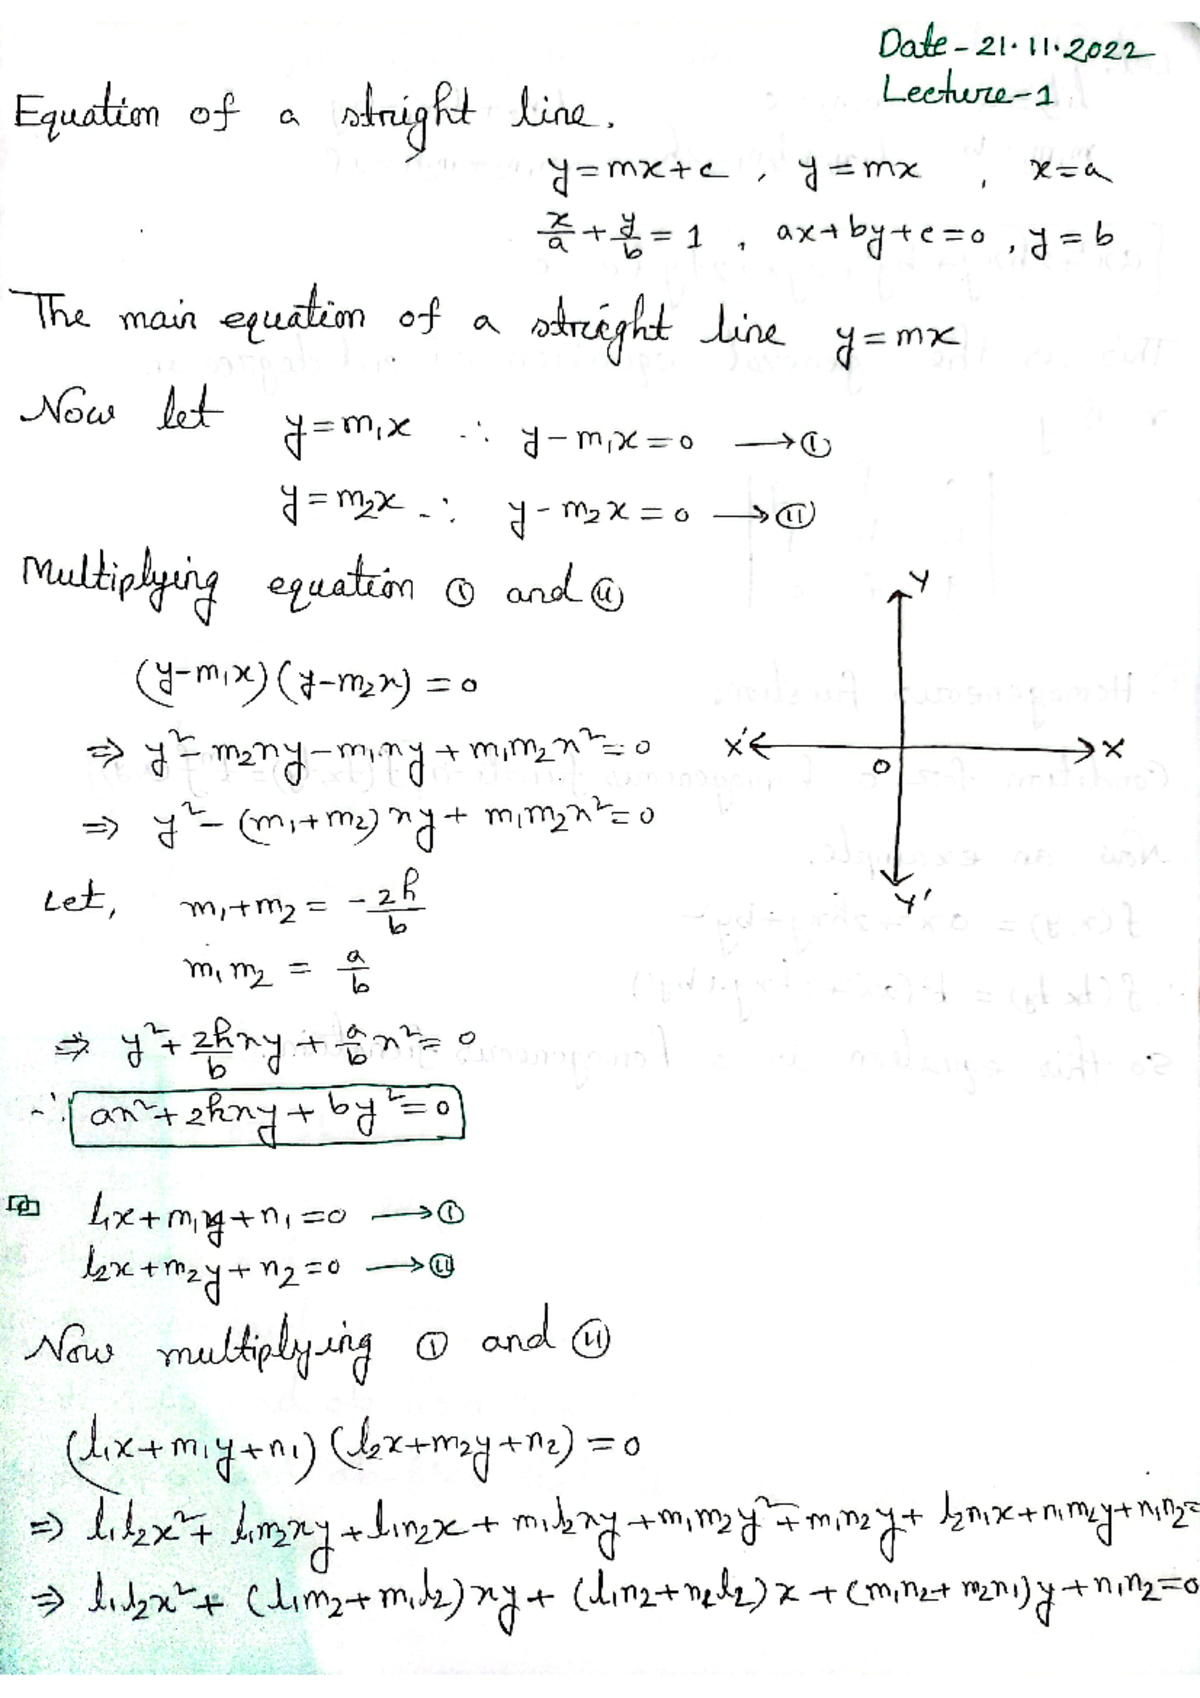 Date - 21.11.2022
Lecture-1
Equation of a stright line.
y=mx+c, y=mx, x=a
x/a + y/b = 1, ax+by+c=0, y=b
The main equation of a streight line y=mx
Now let y=m₁x ∴ y-m₁x=0 → (I)
y=m₂x ∴ y-m₂x=0 → (II)
Multiplying equation (I) and (II)
(y-m₁x)(y-m₂x)=0
⇒ y²-m₂xy-m₁xy+m₁m₂x²=0
⇒ y²-(m₁+m₂)xy+m₁m₂x²=0
Let, m₁+m₂ = -2h/b
m₁m₂ = a/b
⇒ y²+2h/b xy+a/b x²=0
∴ ax²+2hxy+by²=0
Y
X' X
O
Y'
l₁x+m₁y+n₁=0 → (I)
l₂x+m₂y+n₂=0 → (II)
Now multiplying (I) and (II)
(l₁x+m₁y+n₁)(l₂x+m₂y+n₂)=0
⇒ l₁l₂x²+l₁m₂xy+l₁n₂x+m₁l₂xy+m₁m₂y²+m₁n₂y+l₂n₁x+n₁m₂y+n₁n₂=
⇒ l₁l₂x²+(l₁m₂+m₁l₂)xy+(l₁n₂+n₂l₂)x+(m₁n₂+m₂n₁)y+n₁n₂=0